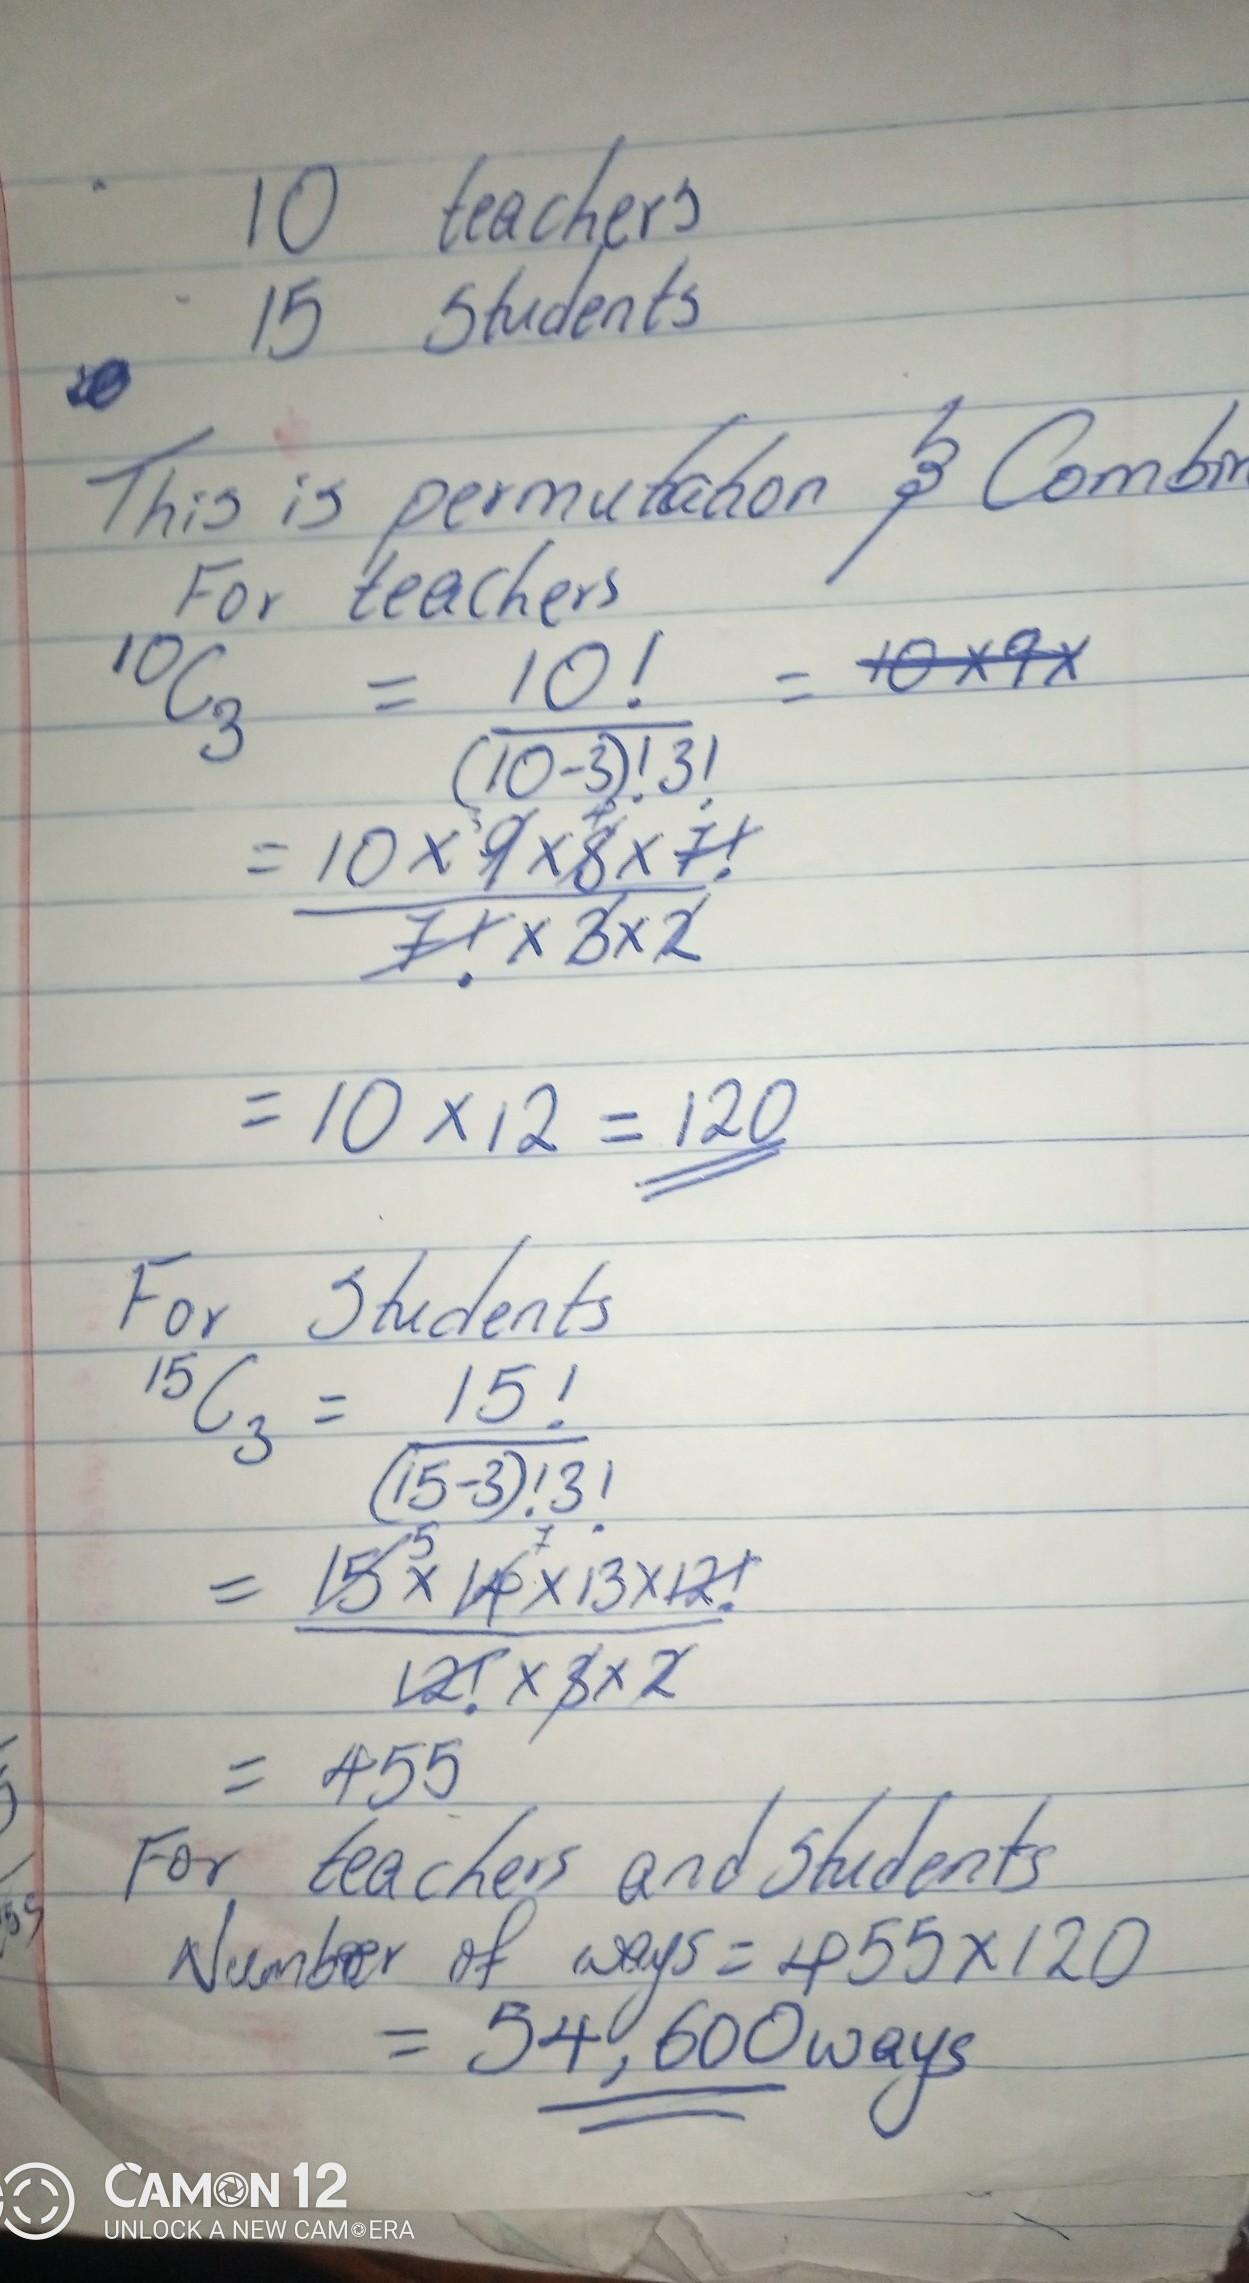 10 teachers
15 Students
This is permutation & Combin
For teachers
¹⁰C₃ = 10! / (10-3)!3! = 10×9×
= 10 × 9 × 8 × 7! / 7! × 3 × 2
3 4
= 10 × 12 = 120
For Students
¹⁵C₃ = 15! / (15-3)!3!
= 15 × 14 × 13 × 12! / 12! × 3 × 2
5 7
= 455
For teachers and Students
Number of ways = 455 × 120
= 54,600 ways
CAMON 12
UNLOCK A NEW CAMERA